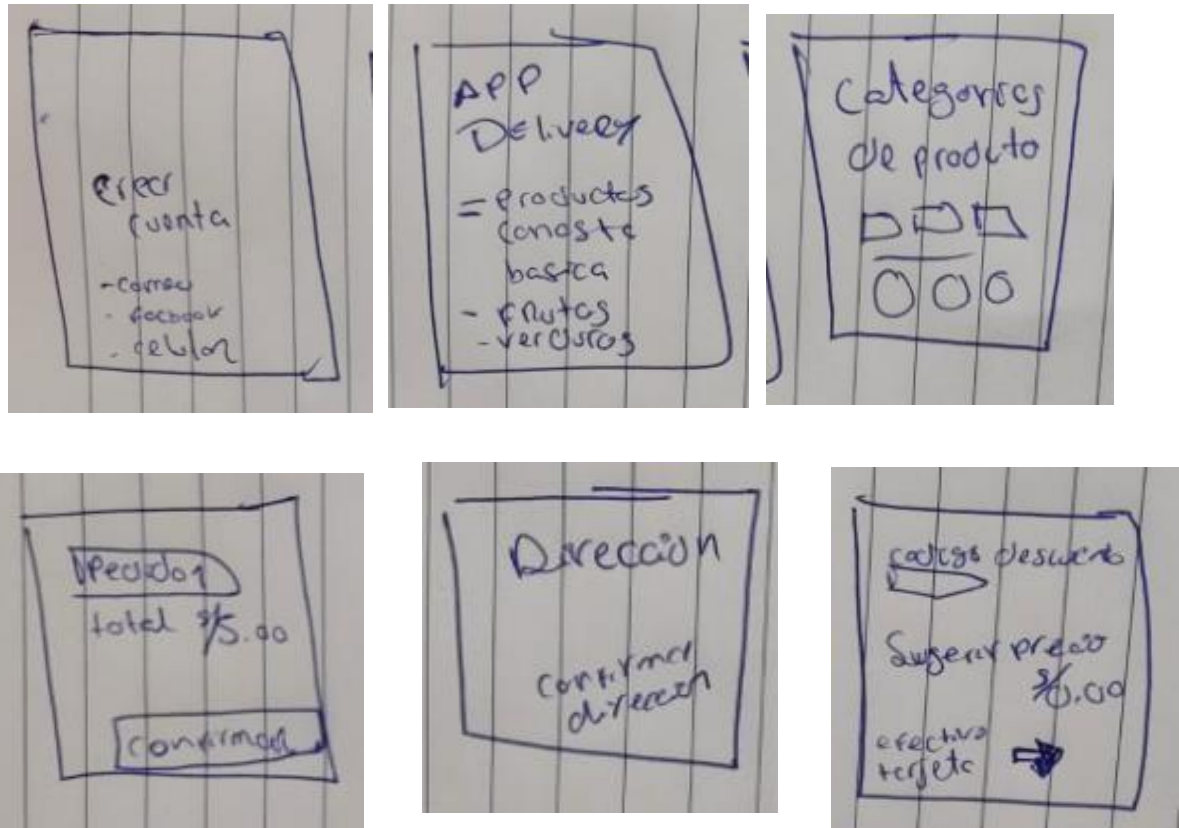 crear
cuenta
- correo
- facebook
- celular
APP
Delivery
= productos
canasta
basica
- frutas
- verduras
Categorias
de producto
Pedido 1
total S/5.00
confirmar
Dirección
confirmar
dirección
codigo descuento
Sugerir precio
S/0.00
efectivo
tarjeta